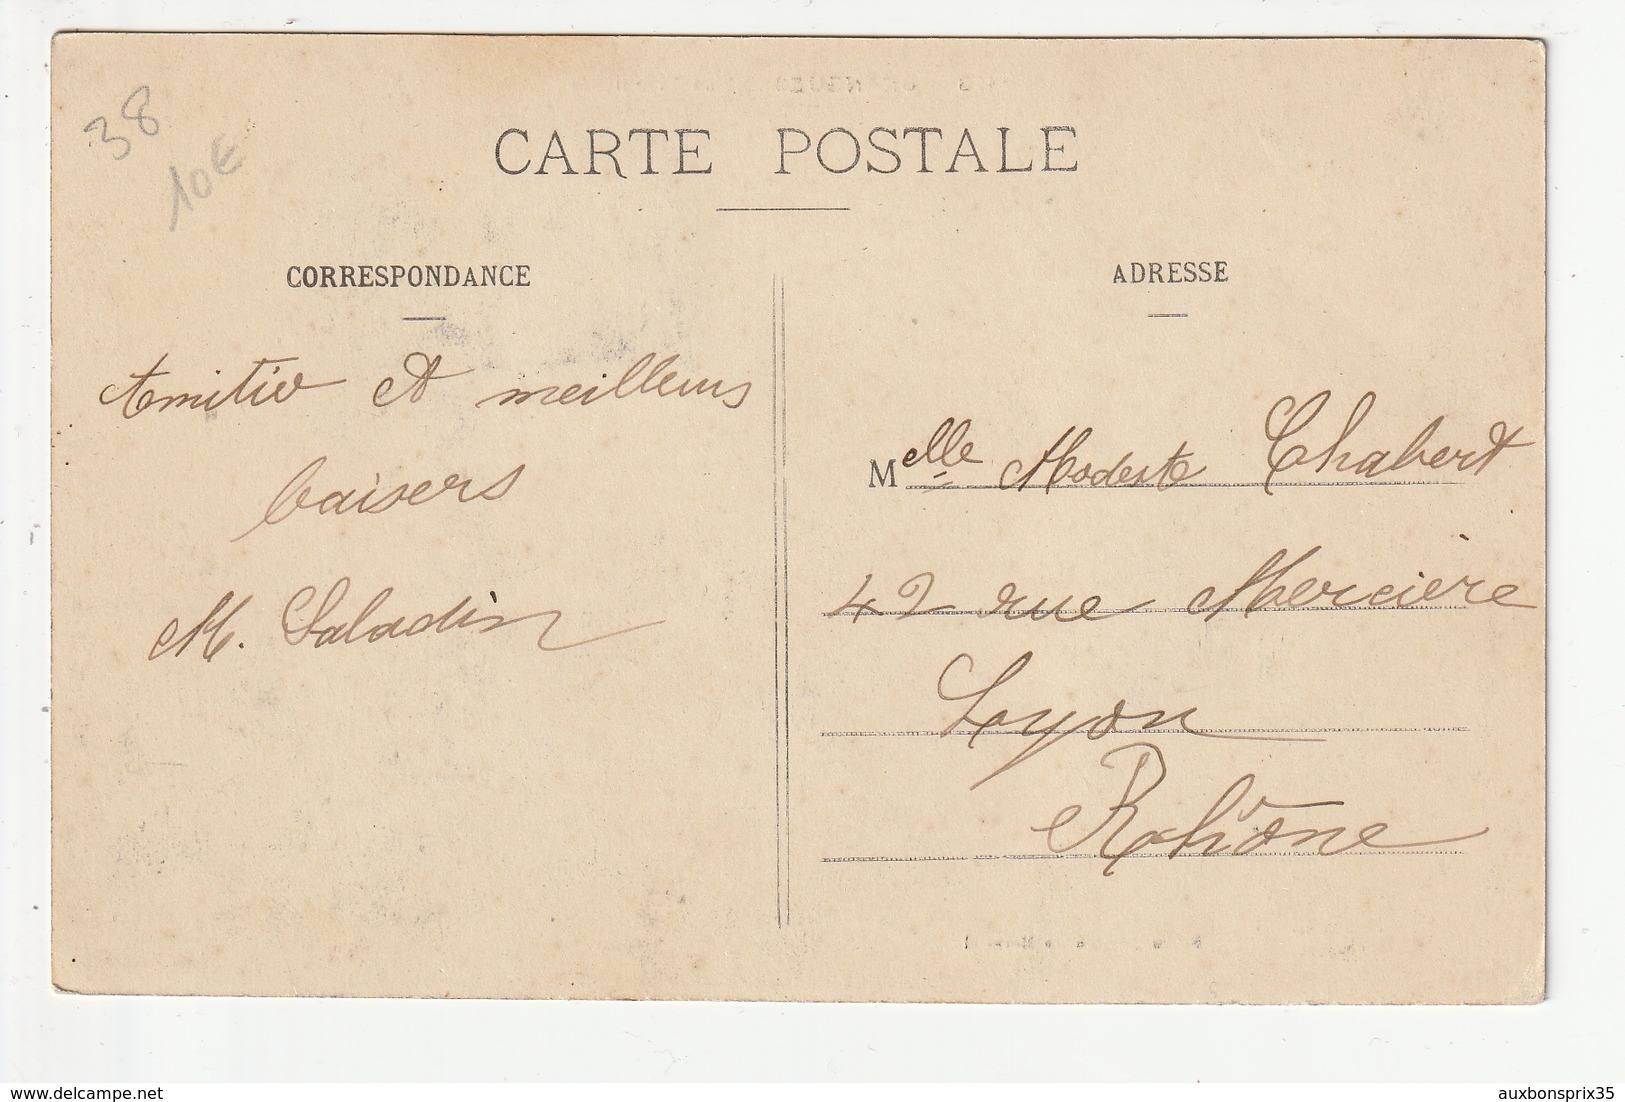 38
10€
CARTE POSTALE
CORRESPONDANCE
Amitié et meilleurs
baisers
M. Saladin
ADRESSE
Melle Modeste Chabert
42 rue Mercière
Lyon
Rhône
delcampe.net
auxbonsprix35